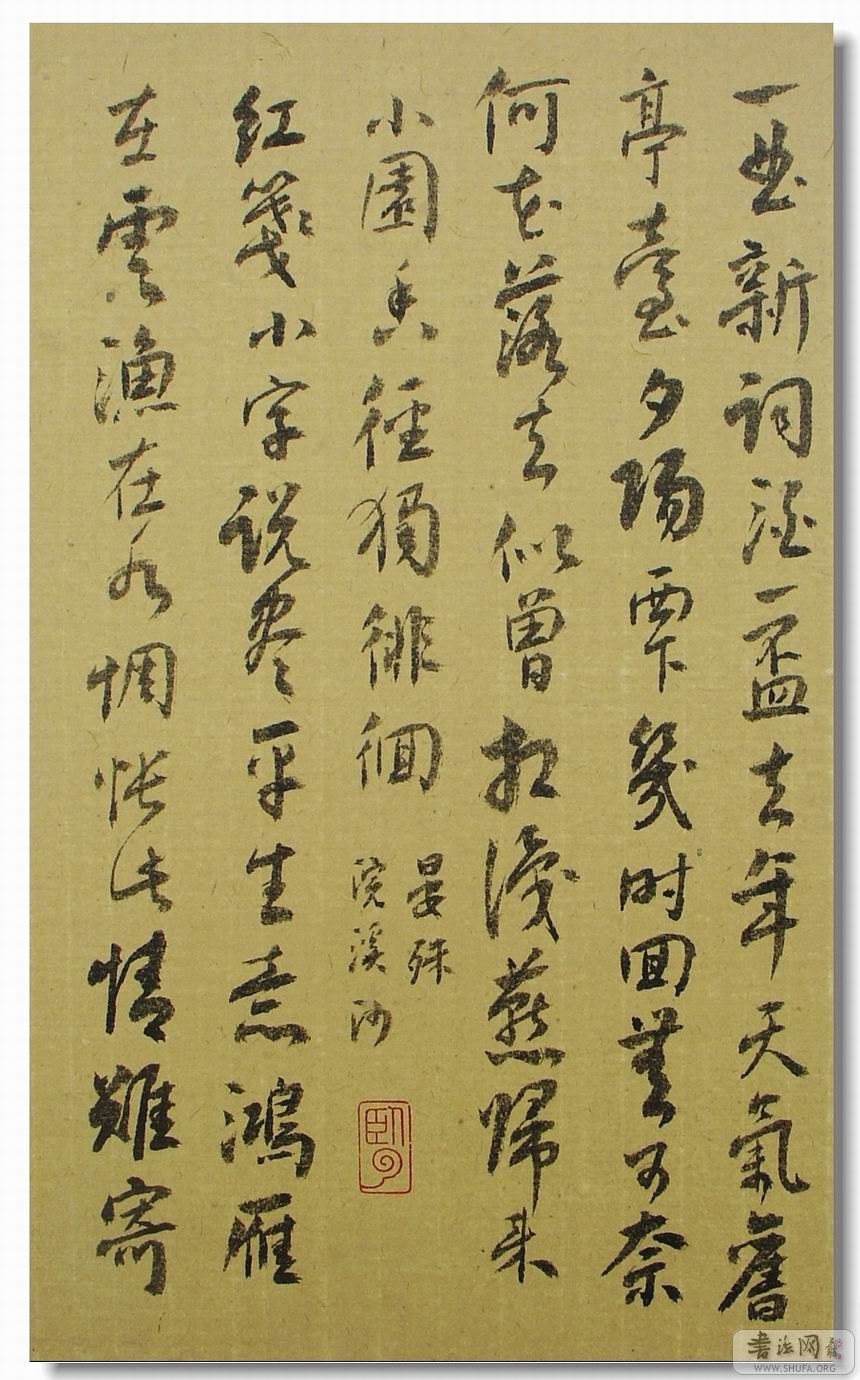 一曲新词酒一盃去年天氣舊
亭臺夕陽西下幾时回無可奈
何花落去似曾相識燕歸来
小園香徑獨徘徊
晏殊
浣溪沙
红箋小字说尽平生意鴻雁
在雲漁在水惆悵此情難寄
書法网
WWW.SHUFA.ORG